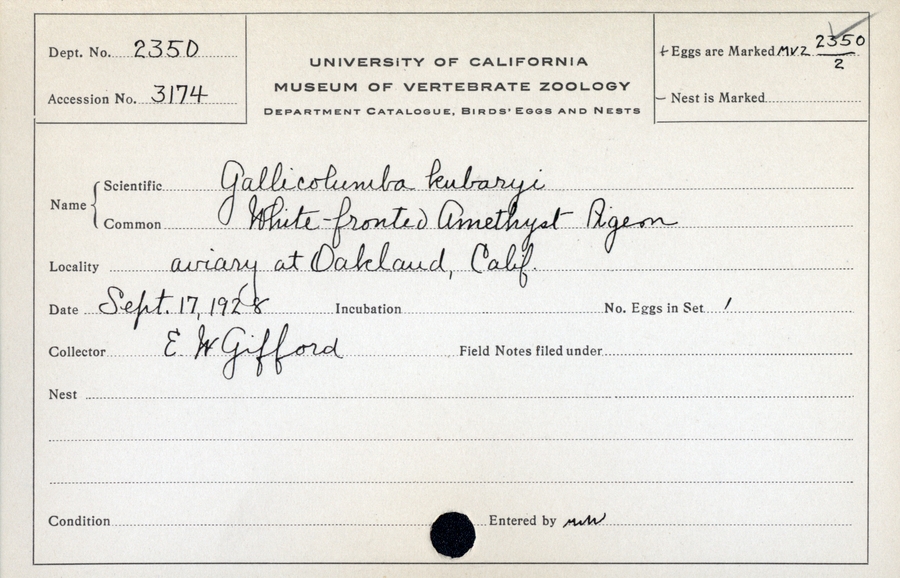 Dept. No. 2350
Accession No. 3174
UNIVERSITY OF CALIFORNIA
MUSEUM OF VERTEBRATE ZOOLOGY
DEPARTMENT CATALOGUE, BIRDS' EGGS AND NESTS
+ Eggs are Marked MVZ 2350
2
– Nest is Marked
Name
Scientific Gallicolumba kubaryi
Common White-fronted Amethyst Pigeon
Locality aviary at Oakland, Calif.
Date Sept. 17, 1928 Incubation No. Eggs in Set 1
Collector E. W. Gifford Field Notes filed under
Nest
Condition Entered by